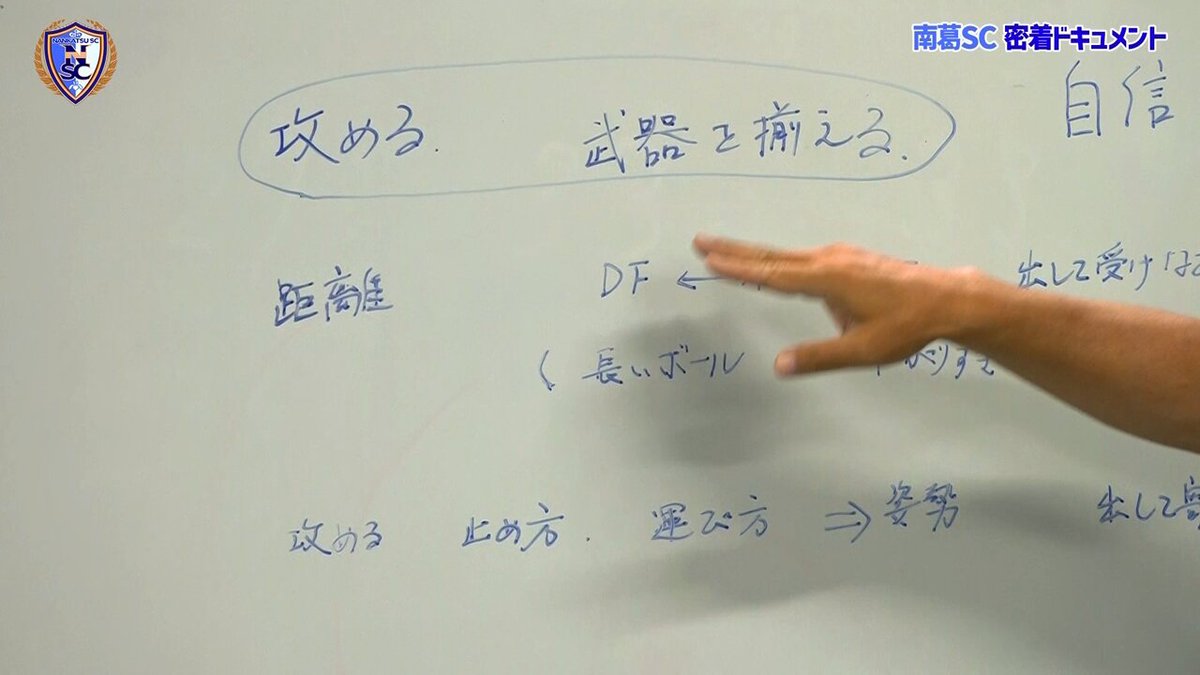 NANKATSU SC
N
SC
南葛SC 密着ドキュメント
攻める. 武器を揃える. 自信
距離 DF ← 出して受け
( 長いボール
攻める 止め方. 運び方 ⇒ 姿勢 出して